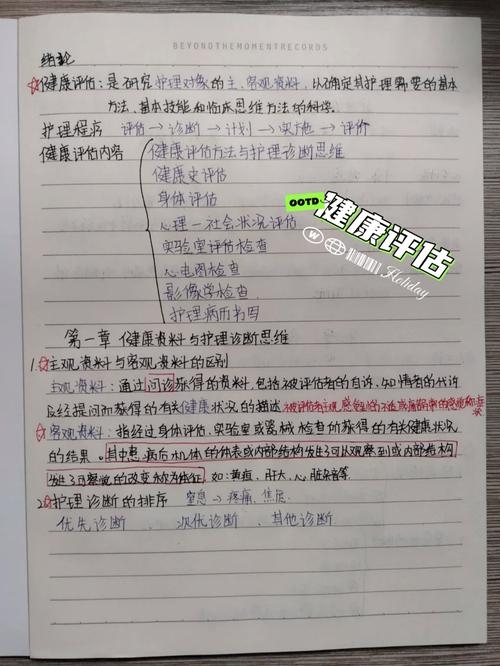 BEYONDTHEMOMENTRECORDS
绪论
健康评估：是研究护理对象的主、客观资料，以确定其护理需要的基本
方法、基本技能和临床思维方法的科学。
护理程序 评估→诊断→计划→实施→评价
健康评估内容 健康评估方法与护理诊断思维
健康史评估
身体评估
心理-社会状况评估
实验室评估检查
心电图检查
影像学检查
护理病历书写
OOTD
健康评估
W
Holiday
第一章 健康资料与护理诊断思维
1.主观资料与客观资料的区别
主观资料：通过问诊获得的资料，包括被评估者的自诉，知情者的代诉
及经提问而获得的有关健康状况的描述 被评估者主观感觉
客观资料：指经过身体评估、实验室或器械检查所获得的有关健康状况
的结果。其中患病后机体的体表或内部结构发生了可以观察到或内部结构
发生了可察觉的改变称为体征，如：黄疸、肝大、心脏杂音等
2.护理诊断的排序 窒息→疼痛、焦虑
优先诊断、次优诊断、其他诊断